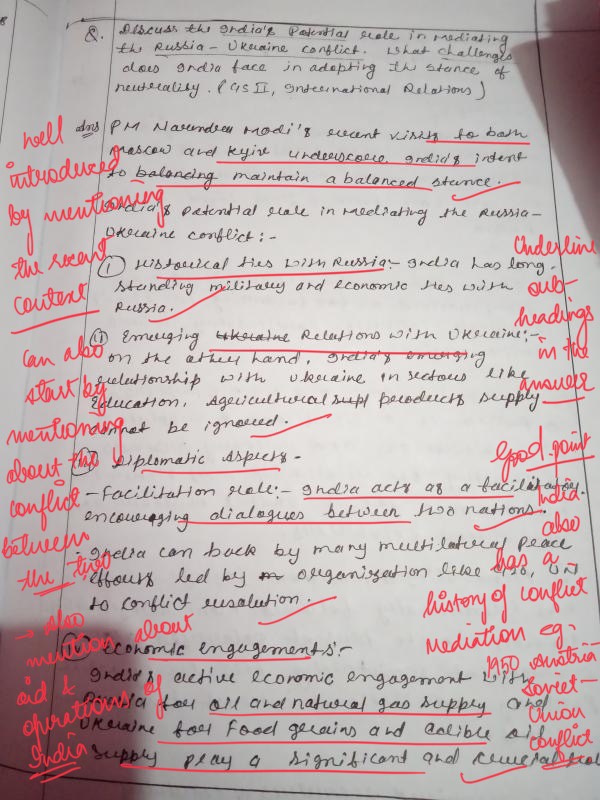 Q. Discuss the India's Potential role in mediating
the Russia - Ukraine conflict. What challenges
does India face in adopting the stance of
neutrality. (GS II, International Relations)
Ans PM Narendra Modi's recent visits to both
Moscow and Kyiv underscore India's intent
to balancing maintain a balanced stance.
India's potential role in mediating the Russia-
Ukraine conflict:-
(i) Historical ties with Russia:- India has long-
standing military and economic ties with
Russia.
(ii) Emerging Ukraine Relations with Ukraine:-
on the other hand, India's emerging
relationship with Ukraine in sectors like
Education, Agricultural products supply
cannot be ignored.
Diplomatic Aspects -
- Facilitation role:- India acts as a facilitator,
encouraging dialogues between two nations.
- India can back by many multilateral peace
efforts led by organization like
to conflict resolution.
Economic engagements:-
India's active economic engagement with
Russia for oil and natural gas supply and
Ukraine for food grains and edible oil
supply play a significant and crucial role
well
introduced
by mentioning
the recent
context
can also
start by
mentioning
about the
conflict
between
the two
→ Also
mention about
aid &
operations of
India
Underline
sub-
headings
in the
answer
Good point
India
also
has a
history of conflict
Mediation eg:-
1950 Austria
Soviet-
Union
conflict